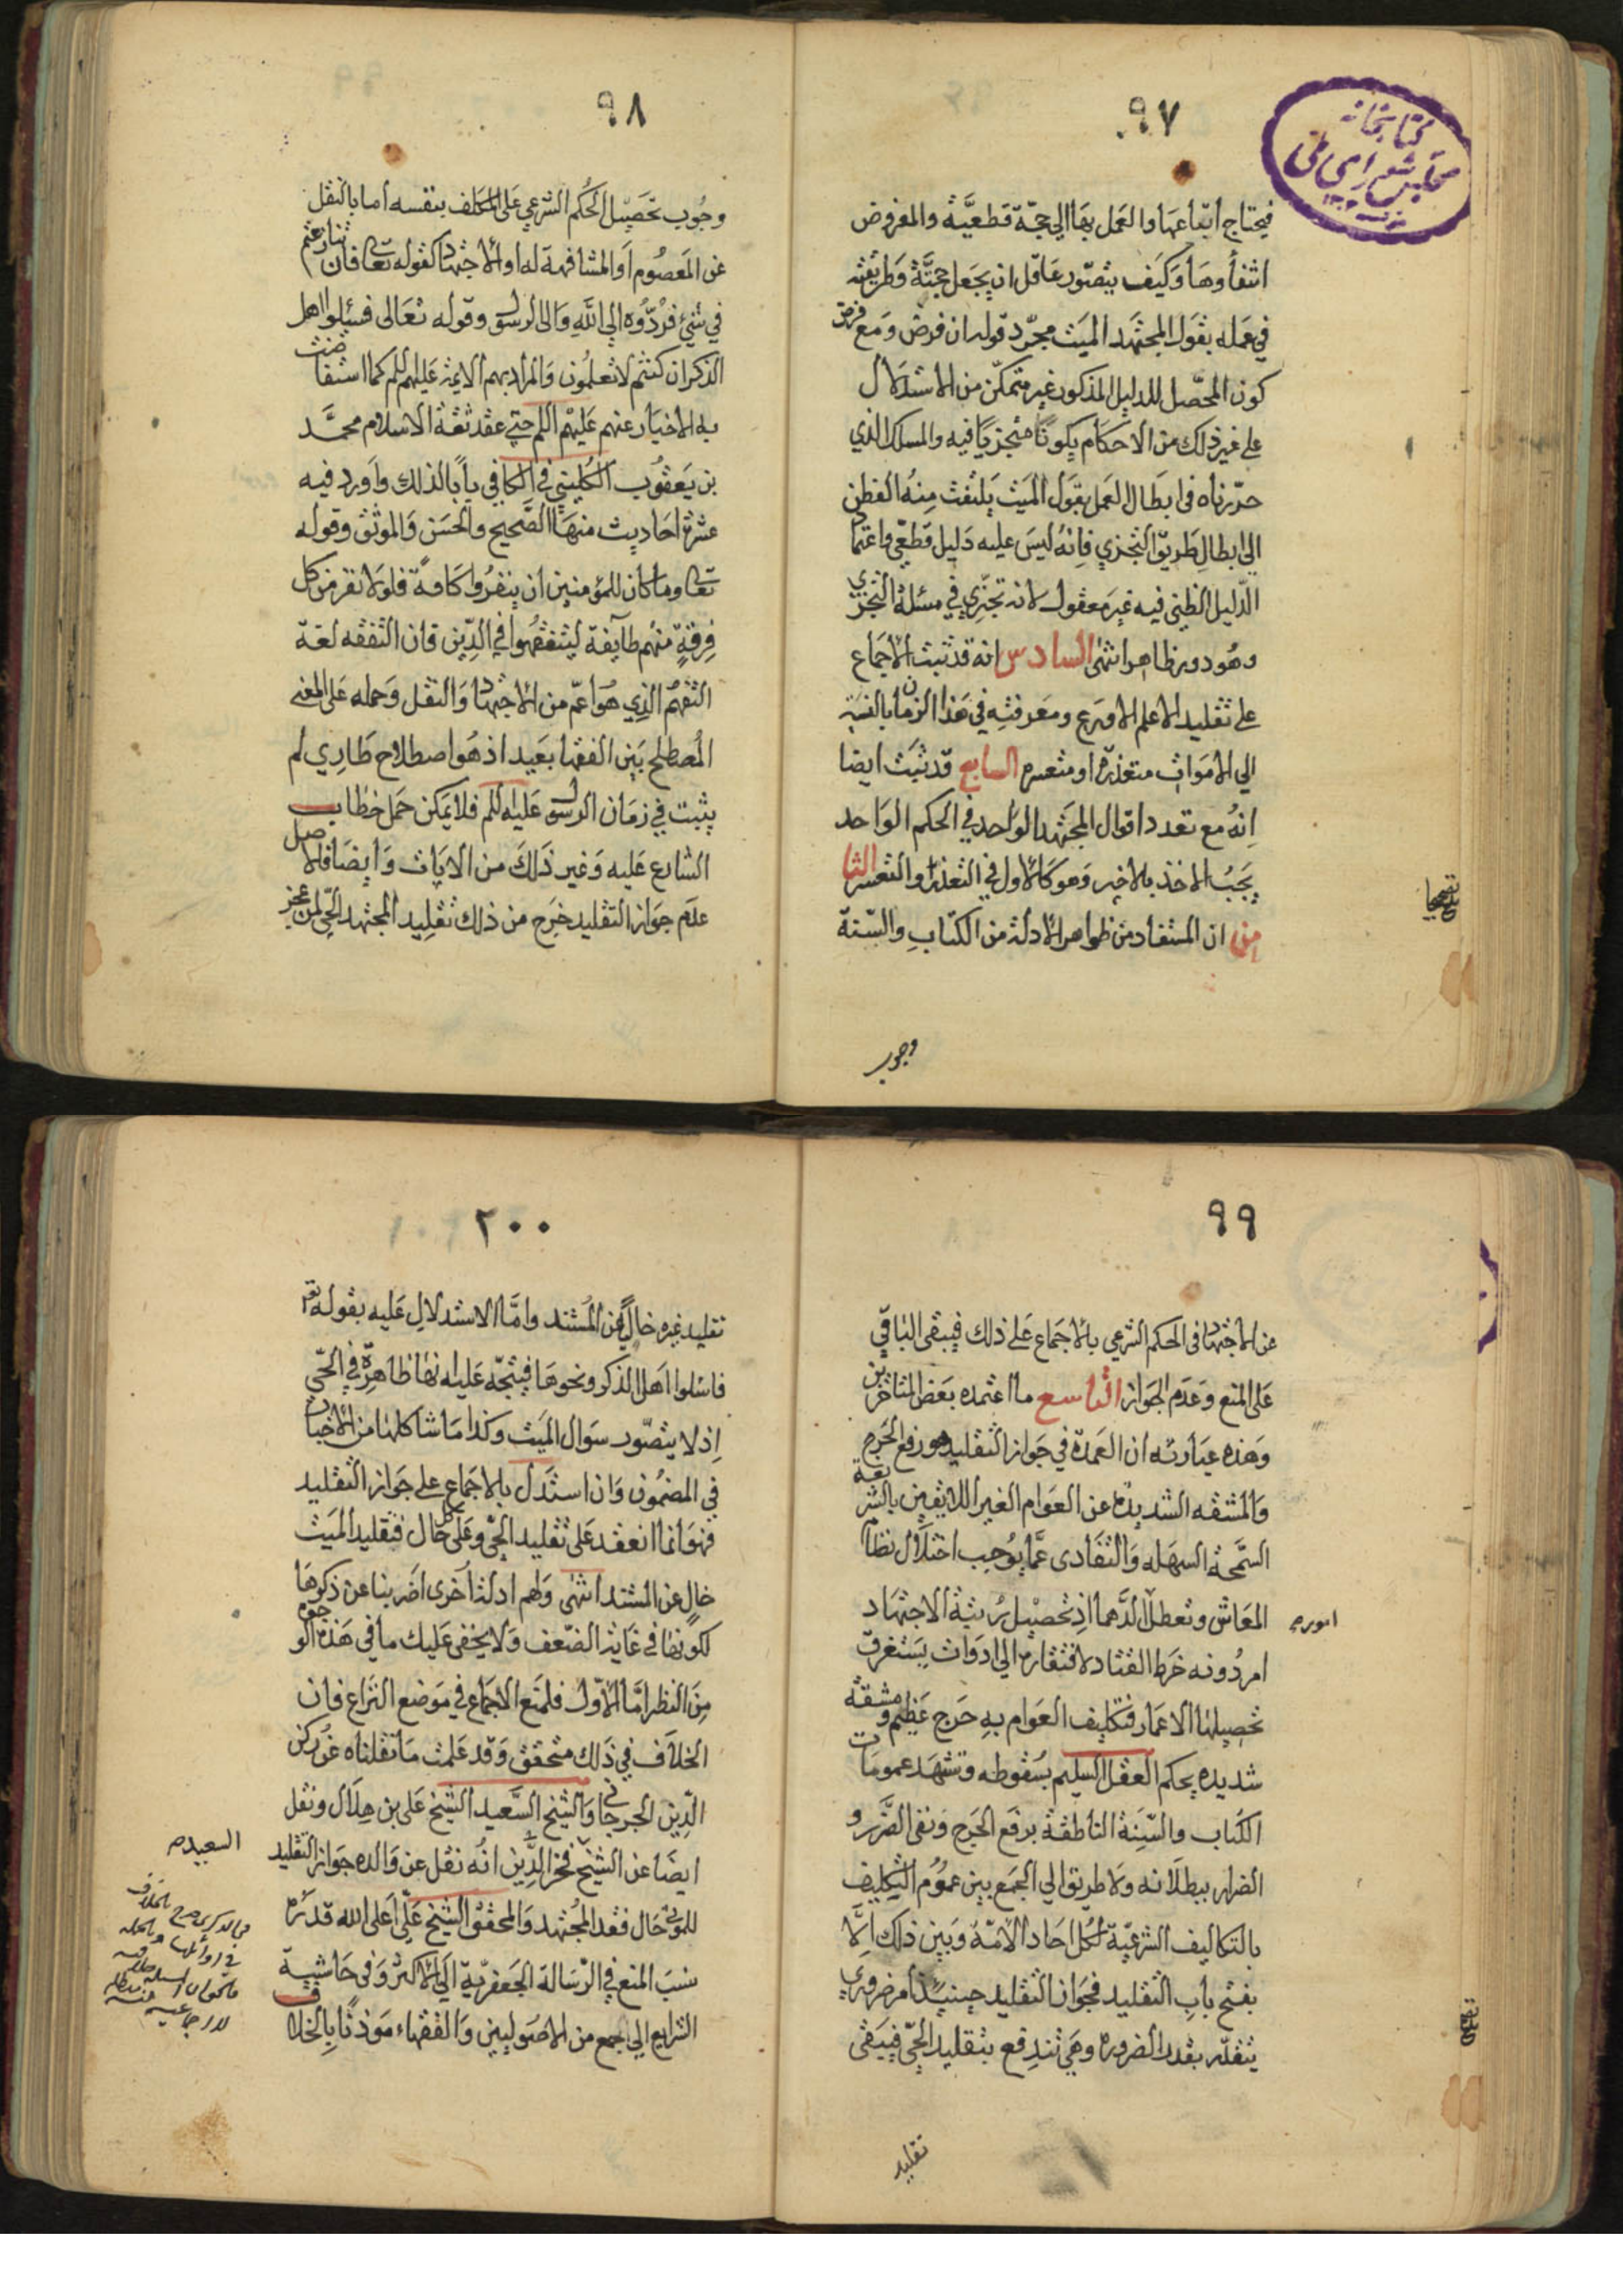 ٩٧
كتابخانه
مجلس شوراى ملى
فيحتاج اتباعها والعمل بها الي حجّة قطعيّة والمفروض
انتفاؤها وكيف يتصوّر عاقل ان يجعل حجّة وطريقة
في عمله بقول المجتهد الميت مجرّد قوله ان فرض ومع فرض
كون المحصّل للدليل المذكور غير متمكّن من الاستدلال
على غير ذلك من الاحكام يكون متجزيا فيه والمسلك الذي
حرّرناه في ابطال العمل بقول الميت يلتفت منه الفطن
الى ابطال طريق التجزي فانه ليس عليه دليل قطعّي واعتما
الدّليل الظني فيه غير معقول لانه تجزّي في مسئلة التجزي
وهو دور ظاهر انتهى السادس انه قد ثبت الاجماع
على تقليد الاعلم الاورع ومعرفته في هذا الزمان بالنسبة
الي الاموات متعذرة او متعسره السابع قد ثبت ايضا
انه مع تعدد اقوال المجتهد الواحد في الحكم الواحد
يجب الاخذ بالاخير وهو كالاول في التعذر او التعسر الثا
من ان المستفاد من ظواهر الادلة من الكتاب والسّنة
وجوب
٩٨
وجوب تحصيل الحكم الشرعي على المكلف بنفسه اما بالنقل
عن المعصوم او المشافهة له او الاجتهاد كقوله تعا فان تنازعتم
في شئ فردّوه الي الله والى الرسول وقوله تعالى فسئلوا اهل
الذكر ان كنتم لا تعلمون والمراد بهم الايمة عليهم السلم كما استفاضت
به الاخبار عنهم عليهم السلم حتي عقد ثقة الاسلام محمّد
بن يعقوب الكليني في الكافي باباً لذلك واورد فيه
عشرة احاديث منها الصّحيح والحسن والموثق وقوله
تعا وما كان للمؤمنين ان ينفروا كافة فلولا نفر من كل
فرقة منهم طايفة ليتفقهوا في الدّين فان التفقه لغة
التفهم الذي هو اعمّ من الاجتهاد والنقل وحمله على المعني
المصطلح بين الفقها بعيد اذ هو اصطلاح طاري لم
يثبت في زمان الرسول عليه السلم فلا يمكن حمل خطاب
الشارع عليه وغير ذلك من الايات وايضا فالاصل
عدم جواز التقليد خرج من ذلك تقليد المجتهد الحّي لمن عجز
٩٩
عن الاجتهاد في الحكم الشرعي بالاجماع على ذلك فيبقى الباقي
على المنع وعدم الجواز التاسع ما اعتمده بعض المتاخرين
وهذه عبارته ان العمدة في جواز التقليد هو رفع الحرج
والمشقه الشديدة عن العوام الغير اللايقين بالشريعة
السّمحة السهله والتفادى عمّا يوجب اختلال نظام
المعاش وتعطل الدهما اذ تحصيل رتبة الاجتهاد
امر دونه خرط القتاد لافتقاره الي ادوات يستغرق
تحصيلها الاعمار فتكليف العوام به حرج عظيم ومشقه
شديده يحكم العقل السليم بسقوطه وتشهد عمومات
الكتاب والسّنة الناطقة برفع الحرج ونفى الضّرر و
الضرار ببطلانه ولا طريق الي الجمع بين عموم التكليف
بالتكاليف الشرعيّة لكل احاد الامّة وبين ذلك الّا
بفتح باب التقليد فجواز التقليد حينئذ امر ضروري
يتقدّر بقدر الضروره وهي تندفع بتقليد الحّي فيبقى
تقليد
٢٠٠
تقليد غيره خالٍ عن المستند وامّا الاستدلال عليه بقوله تع
فاسئلوا اهل الذكر ونحوها فيتجّه عليه انها ظاهرة في الحّي
اذ لا يتصّور سوال الميت وكذا ما شاكلها من الاخبار
في المضمون وان استدل بالاجماع على جواز التقليد
فهو انما انعقد على تقليد الحّي وعلى كل حال فتقليد الميت
خالٍ عن المستند انتهى ولهم ادلة اخرى اضربنا عن ذكرها
لكونها في غاية الضّعف ولا يخفى عليك ما في هذه الوجوه
من النظر امّا الاوّل فلمنع الاجماع في موضع النزاع فان
الخلاف في ذلك متحقق وقد علمت ما نقلناه عن ركن
الدّين الجرجاني والشيخ السّعيد الشيخ على بن هلال ونقل
ايضا عن الشيخ فخر الدّين انه نقل عن والده جواز التقليد
للموتى حال فقد المجتهد والمحقق الشيخ علّي اعلى الله قدره
نسب المنع في الرّسالة الجعفريّة الي الاكثر وفى حاشية
الشرايع الي الجمع من الاصوليين والفقهاء موذنا بالخلاف